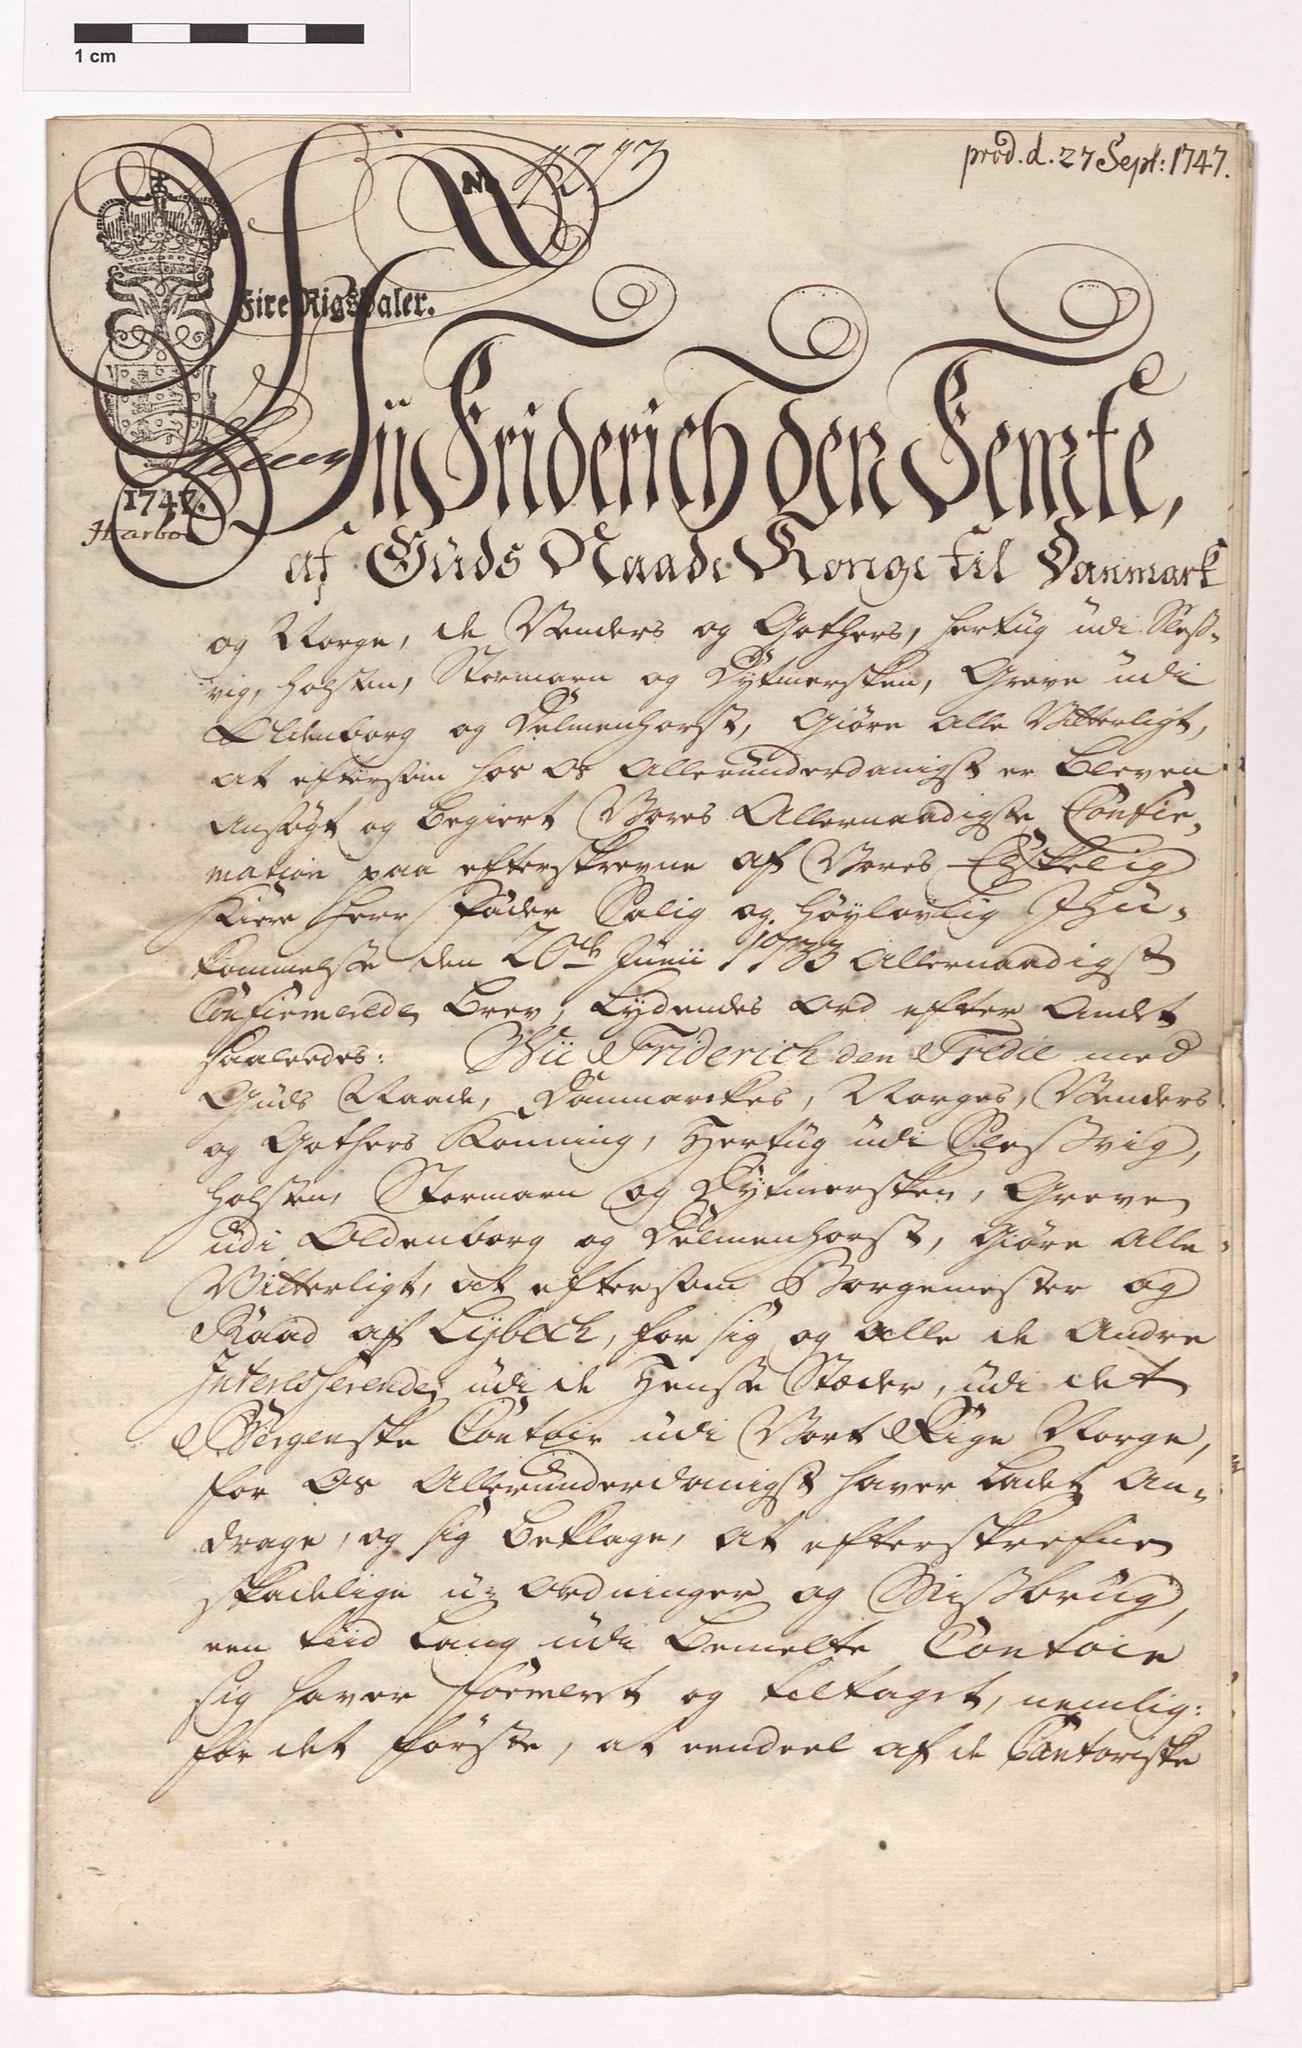 1 cm
prod. d. 27 Sept: 1747.
No 4273
Fire Rigsdaler.
1747.
Wii Friderich den Femte,
af Guds Naade Konge til Danmark
og Norge, de Venders og Gothers, Hertug udi Sless-
vig, Holsten, Stormarn og Dytmersken, Greve udi
Oldenborg og Delmenhorst, Giøre alle Vitterligt,
at eftersom hos Os Allerunderdanigst er bleven
ansøgt og begiert Vores Allernaadigste Confir-
mation paa efterskrevne af Vores Elskelig
Kiere Herr Fader Salig og Høylovlig Ihu-
kommelse den 20de Junii 1733 Allernaadigst
Confirmerede Brev, Lydendes Ord efter Andet
saaledes: Wii Friderich den Tredie med
Guds Naade, Danmarckes, Norges, Venders
og Gothers Konning, Hertug udi Slessvig,
Holsten, Stormarn og Dytmersken, Greve
udi Oldenborg og Delmenhorst, Giøre Alle
Vitterligt, at eftersom Borgemester og
Raad af Lybeck, for sig og alle de Andre
Interesserende udi de Hense Stæder, udi det
Bergenske Contoir udi Vort Rige Norge,
for Os Allerunderdanigst haver ladet An-
drage, og sig beklage, at efterskrefne
skadelige u-ordninger og Missbrug,
een tiid lang udi bemelte Contoir
sig haver formeret og tiltaget, nemlig:
for det første, at eendeel af de Contoriske